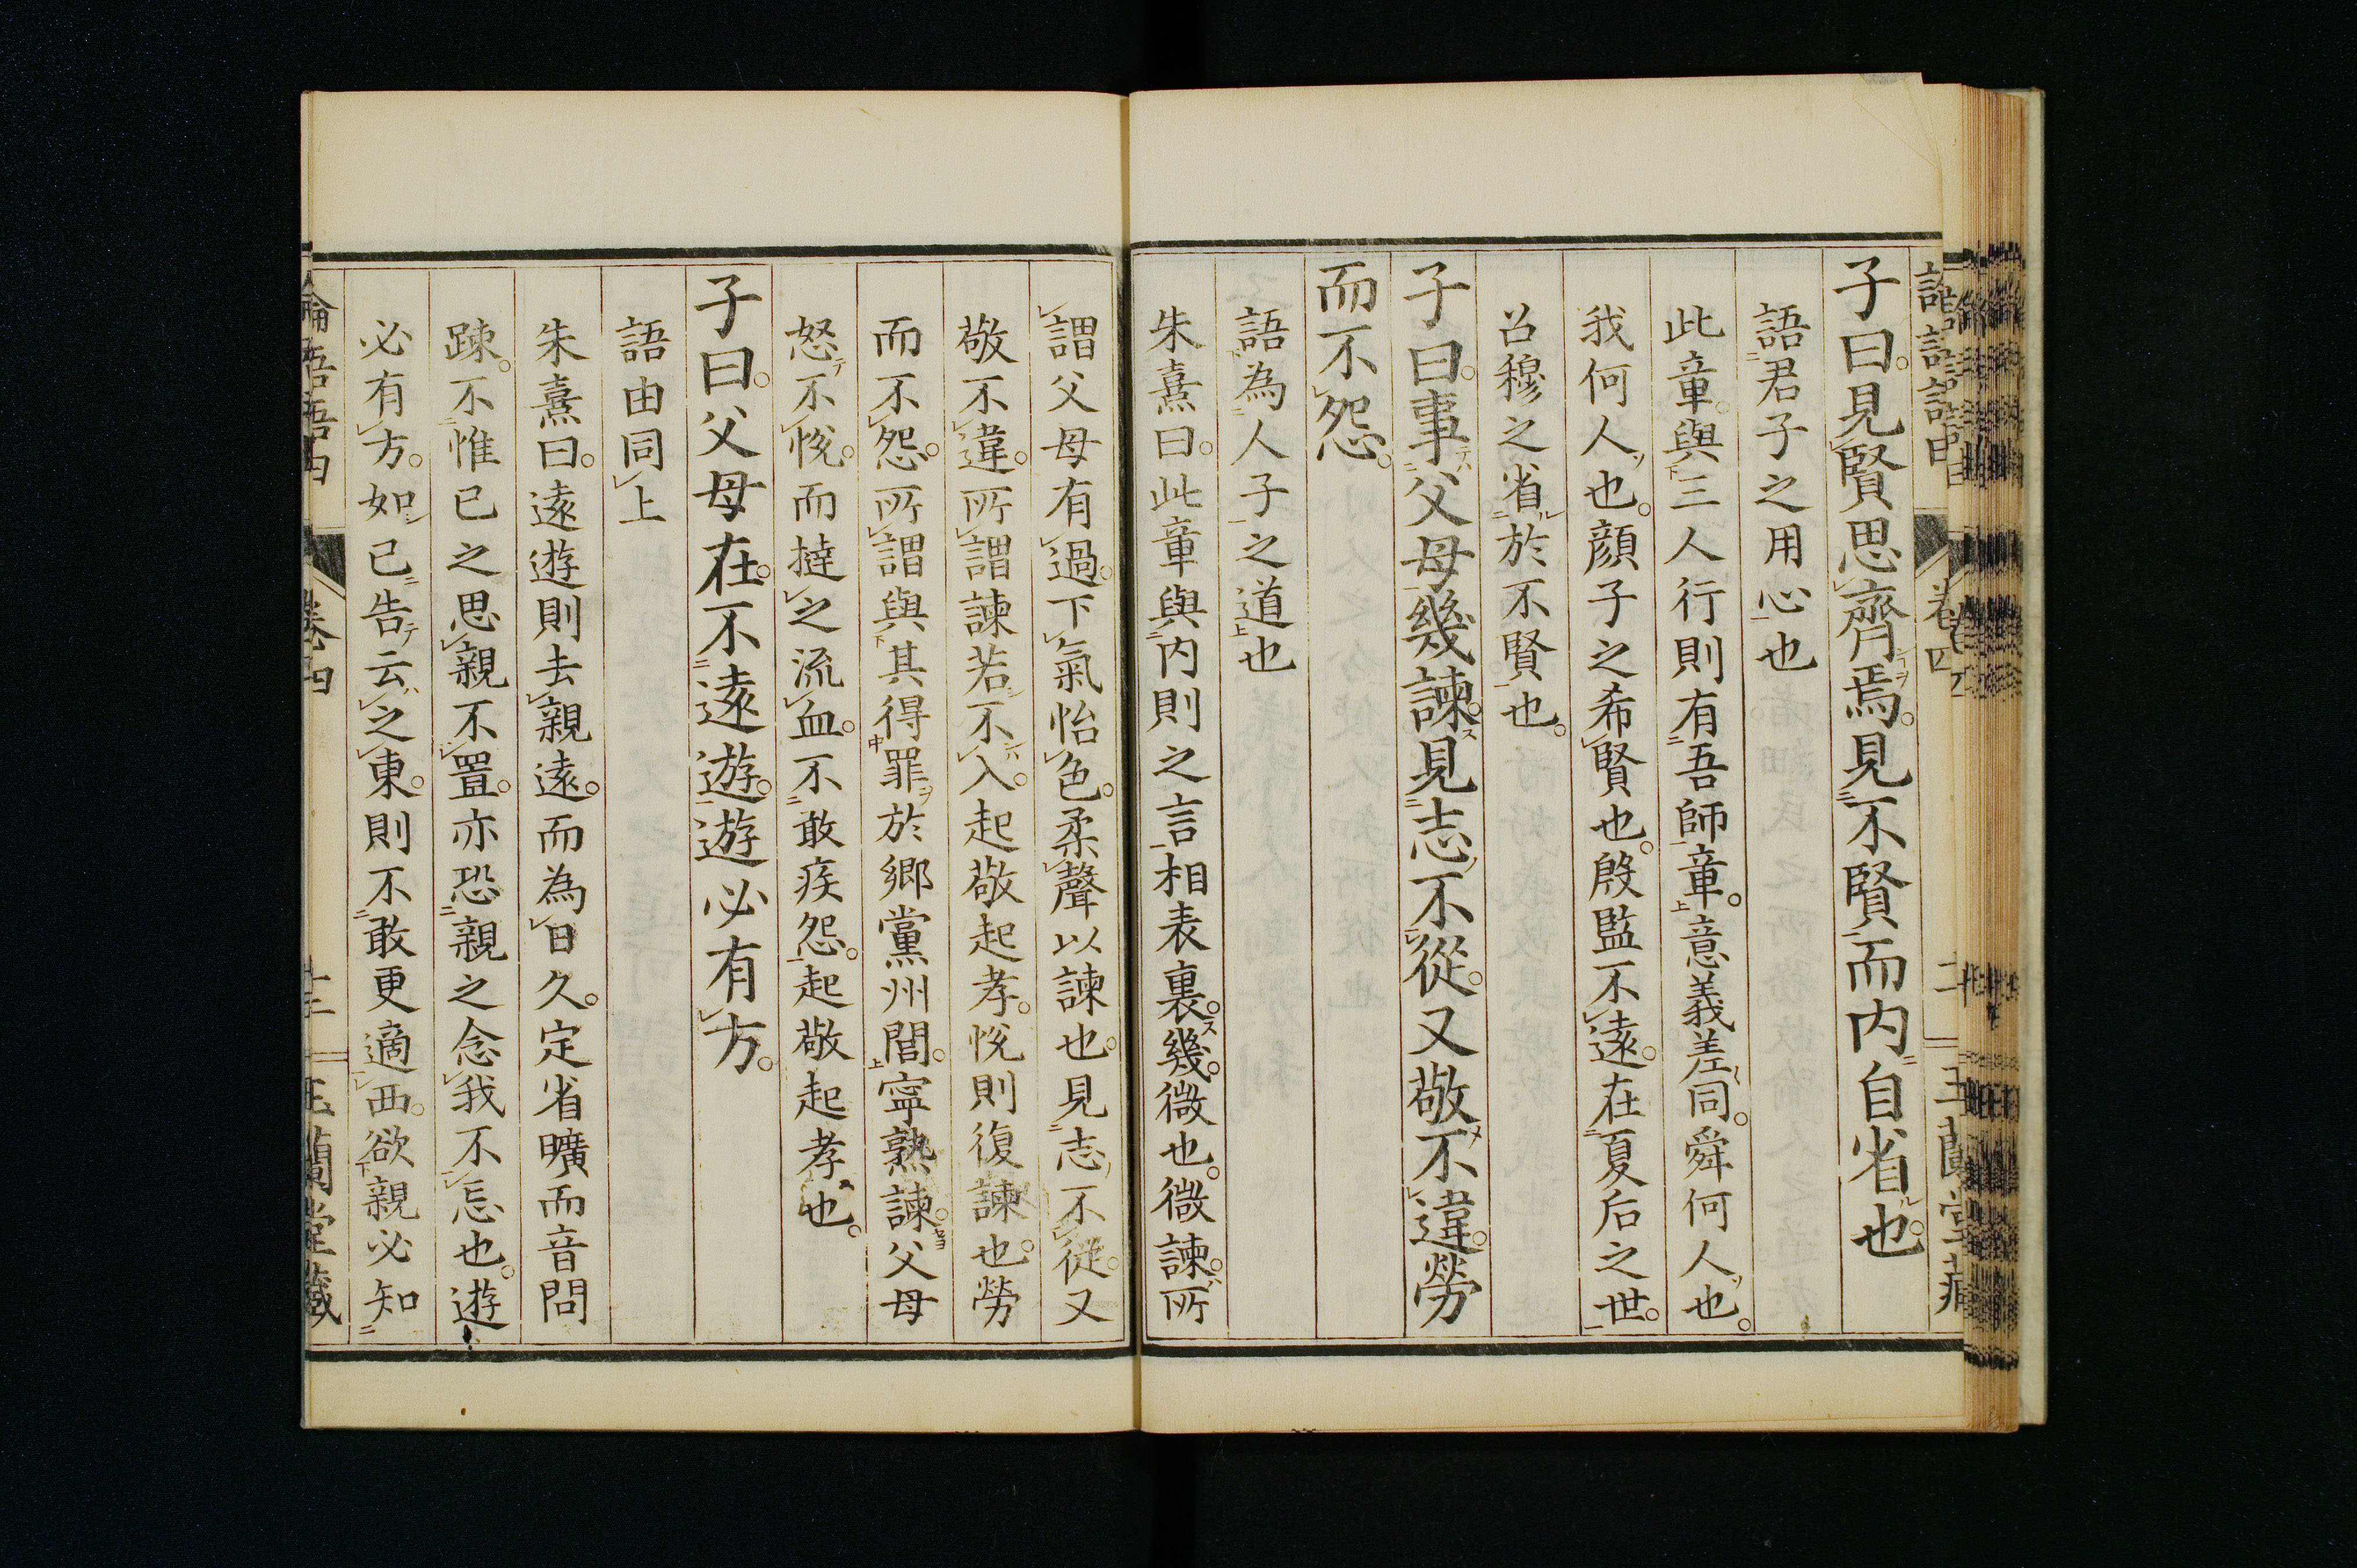 子曰。見賢思齊焉。見不賢而内自省也。
語君子之用心也
此章與三人行則有吾師章。意義差同。舜何人也。
我何人也。顔子之希賢也。殷監不遠。在夏后之世。
召穆之省於不賢也。
子曰。事父母幾諫。見志不從。又敬不違。勞
而不怨。
語為人子之道也
朱熹曰。此章與内則之言相表裏。幾。微也。微諫。所
謂父母有過。下氣怡色。柔聲以諫也。見志不從。又
敬不違。所謂諫若不入。起敬起孝。悅則復諫也。勞
而不怨。所謂與其得罪於鄉黨州閭。寧熟諫。父母
怒不悅。而撻之流血。不敢疾怨。起敬起孝也。
子曰。父母在。不遠遊。遊必有方。
語由同上
朱熹曰。遠遊則去親遠。而為日久。定省曠而音問
踈。不惟已之思親不置。亦恐親之念我不忘也。遊
必有方。如已告云之東。則不敢更適西。欲親必知
卷四
玉蘭堂藏